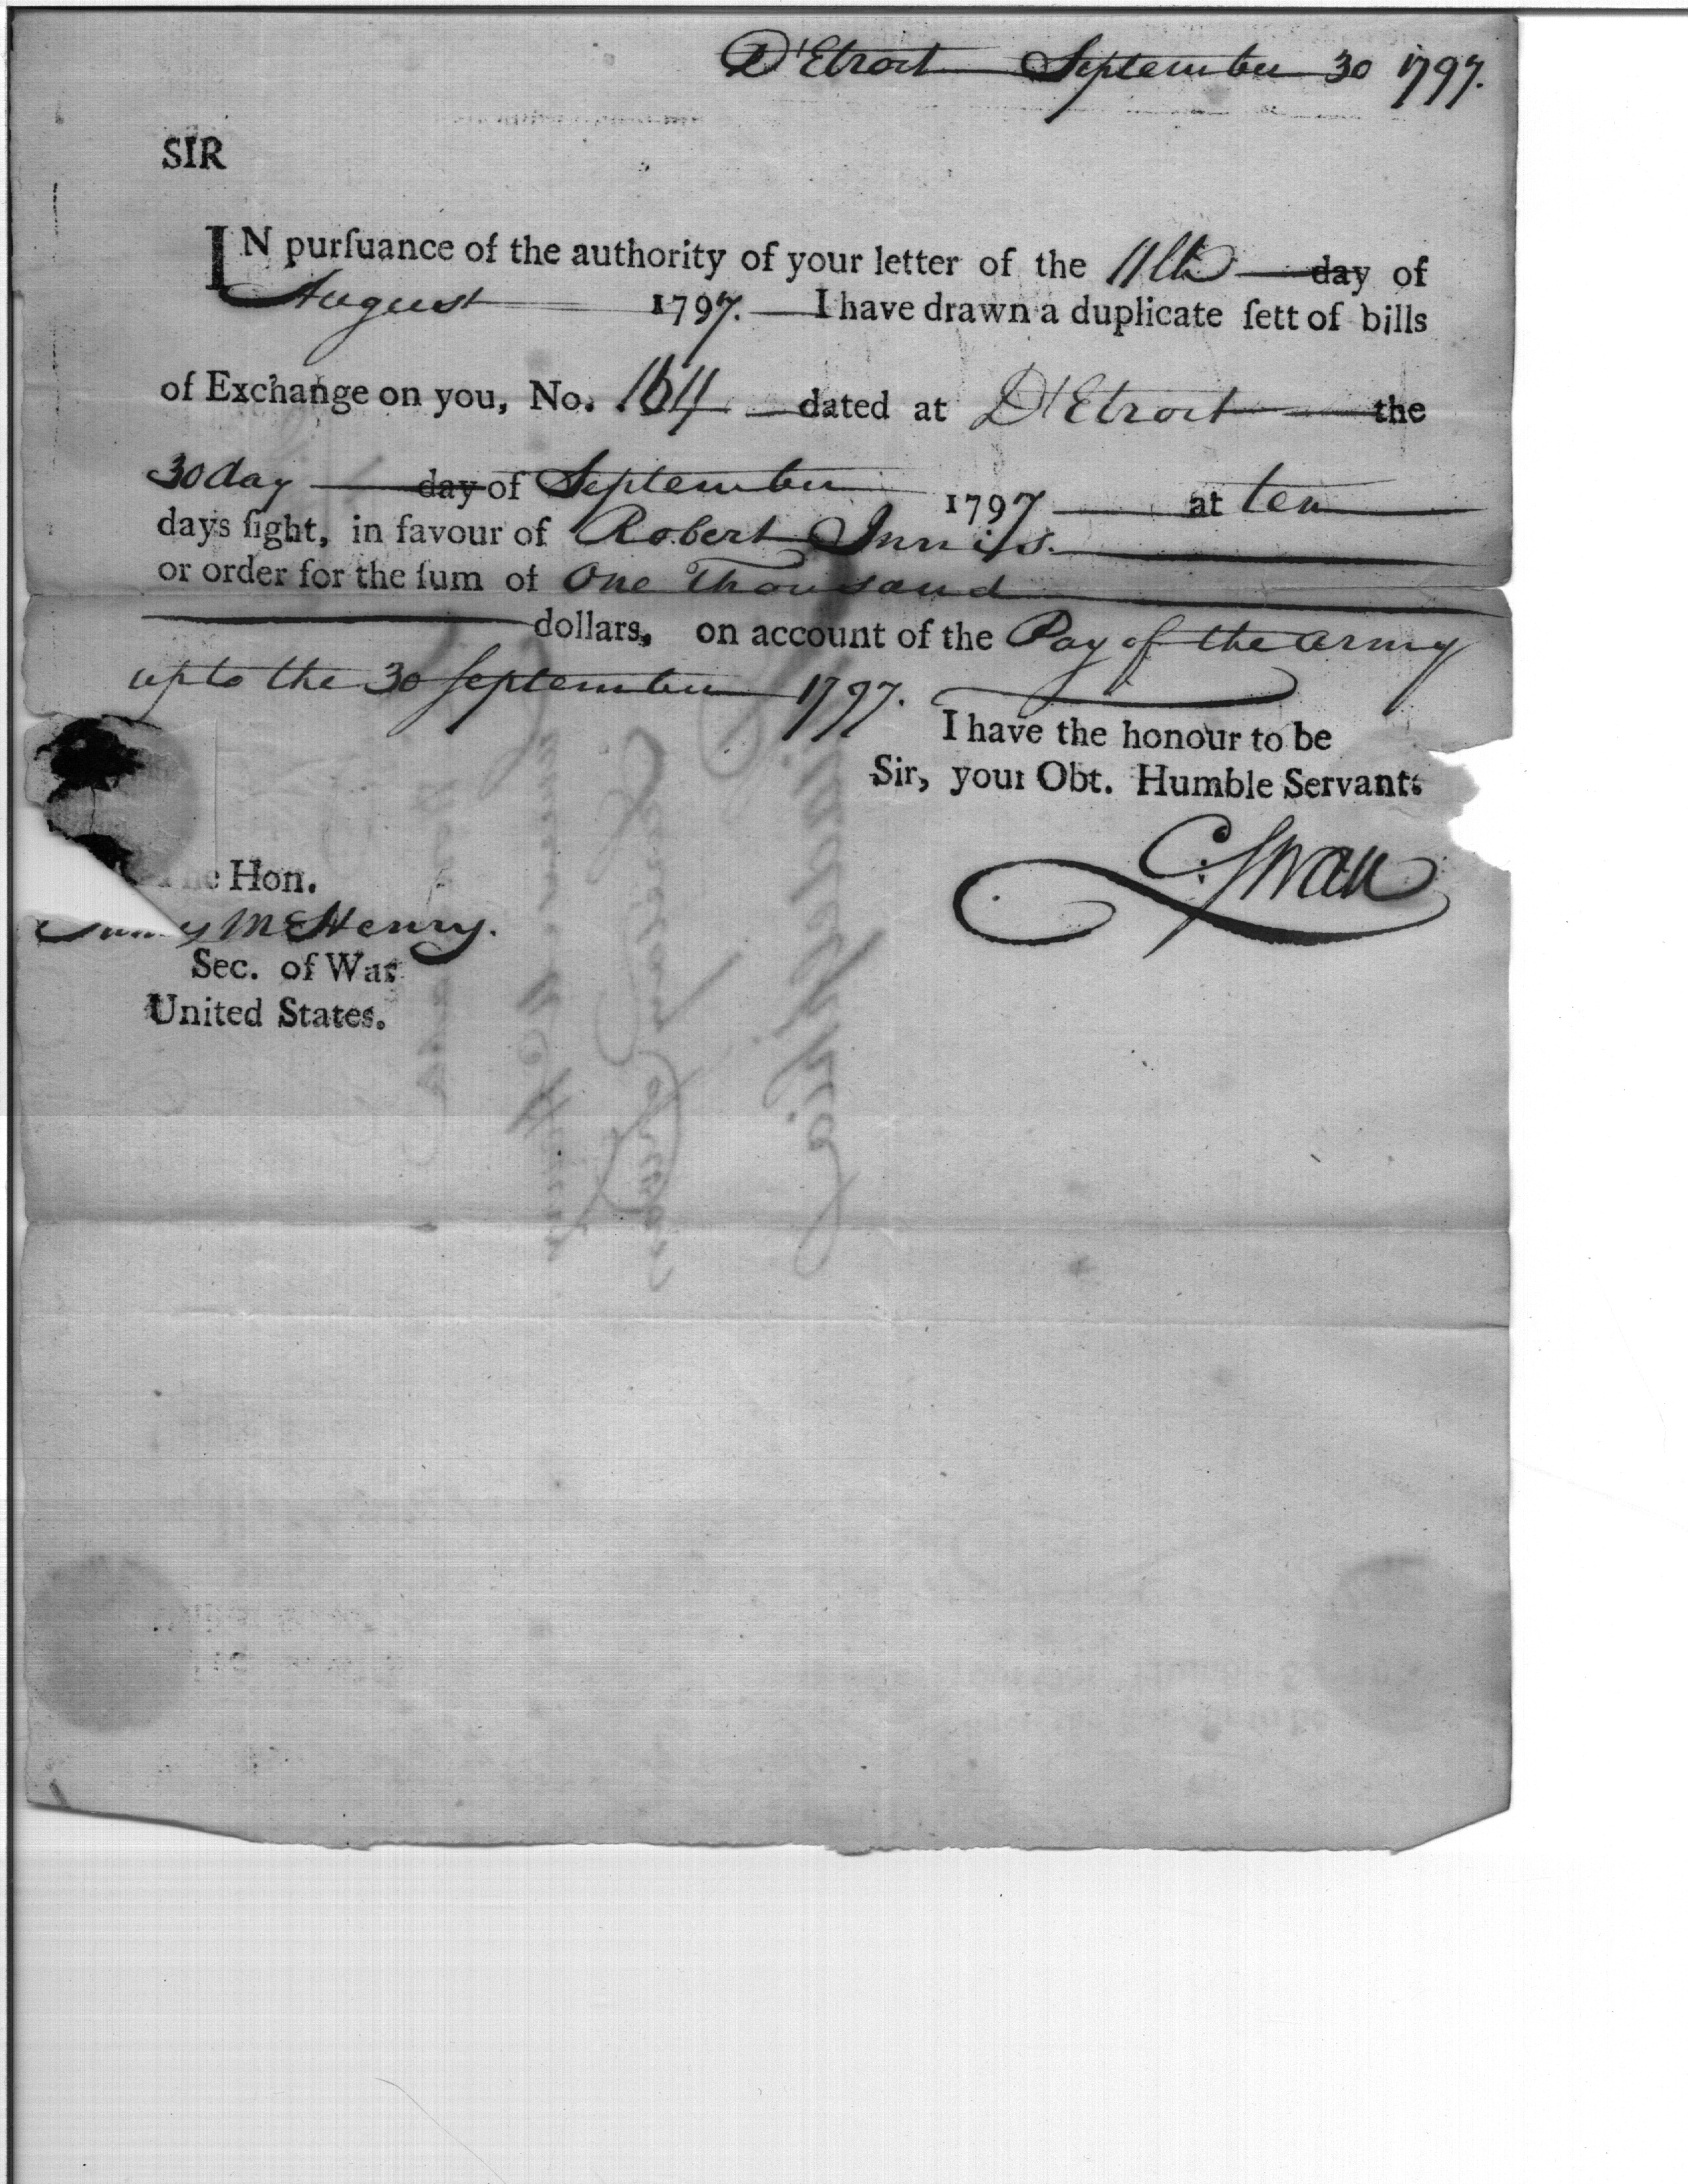 D'Etroit September 30 1797.
SIR
IN purſuance of the authority of your letter of the 11th day of
August 1797. I have drawn a duplicate ſett of bills
of Exchange on you, No. 164 dated at D'Etroit the
30 day day of September 1797 at ten
days ſight, in favour of Robert Innis.
or order for the ſum of One Thousand
dollars, on account of the Pay of the army
up to the 30 September 1797.
I have the honour to be
Sir, your Obt. Humble Servant.
C. Swan
The Hon.
James McHenry.
Sec. of War
United States.